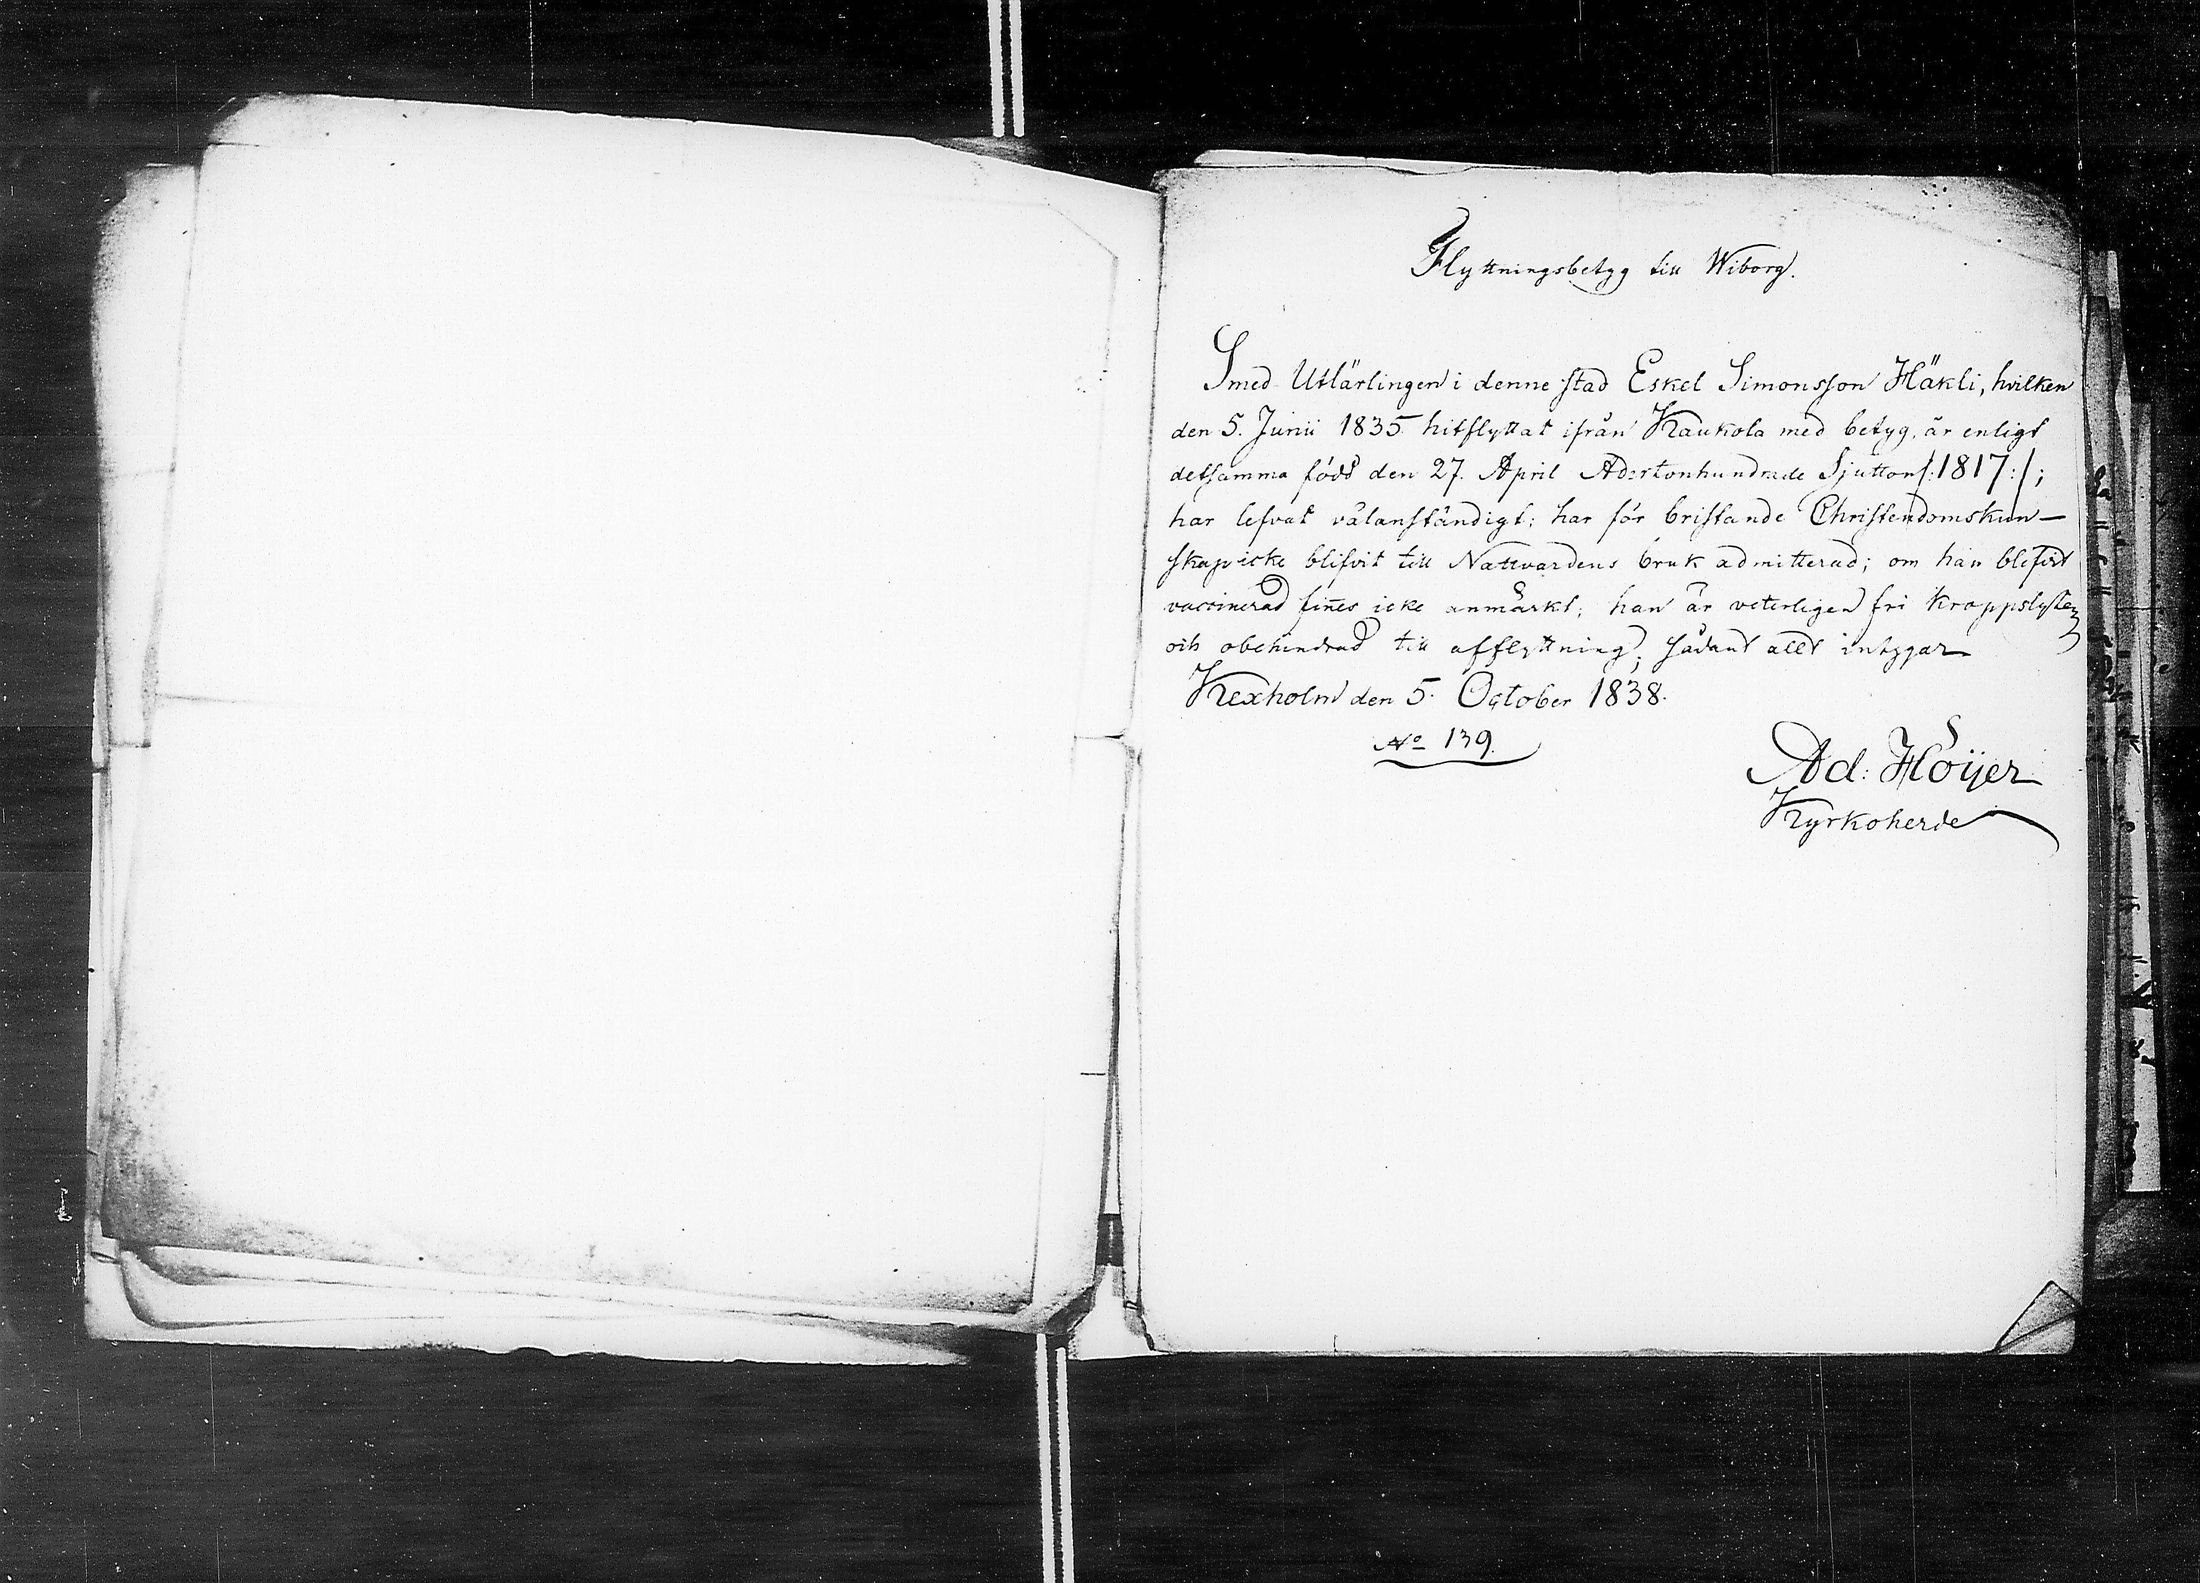 Flyttningsbetyg till Wiborg.
Smed Utlärlingen i denne stad Eskel Simonsson Häkli, hvilken
den 5. Junii 1835 hitflyttat ifrån Kaukola med betyg, är enligt
detsamma född den 27. April Adertonhundrade Sjutton /:1817:/;
har lefvat välanständigt; har för bristande Christendomskun-
skap icke blifvit till Nattvardens bruk admitterad; om han blifvit
vaccinerad fines icke anmärkt; han är veterligen fri kroppslyten
och obehindrad till afflyttning; sådant allt intygar
Kexholm den 5. October 1838.
No 139.
Ad: Höijer
Kyrkoherde